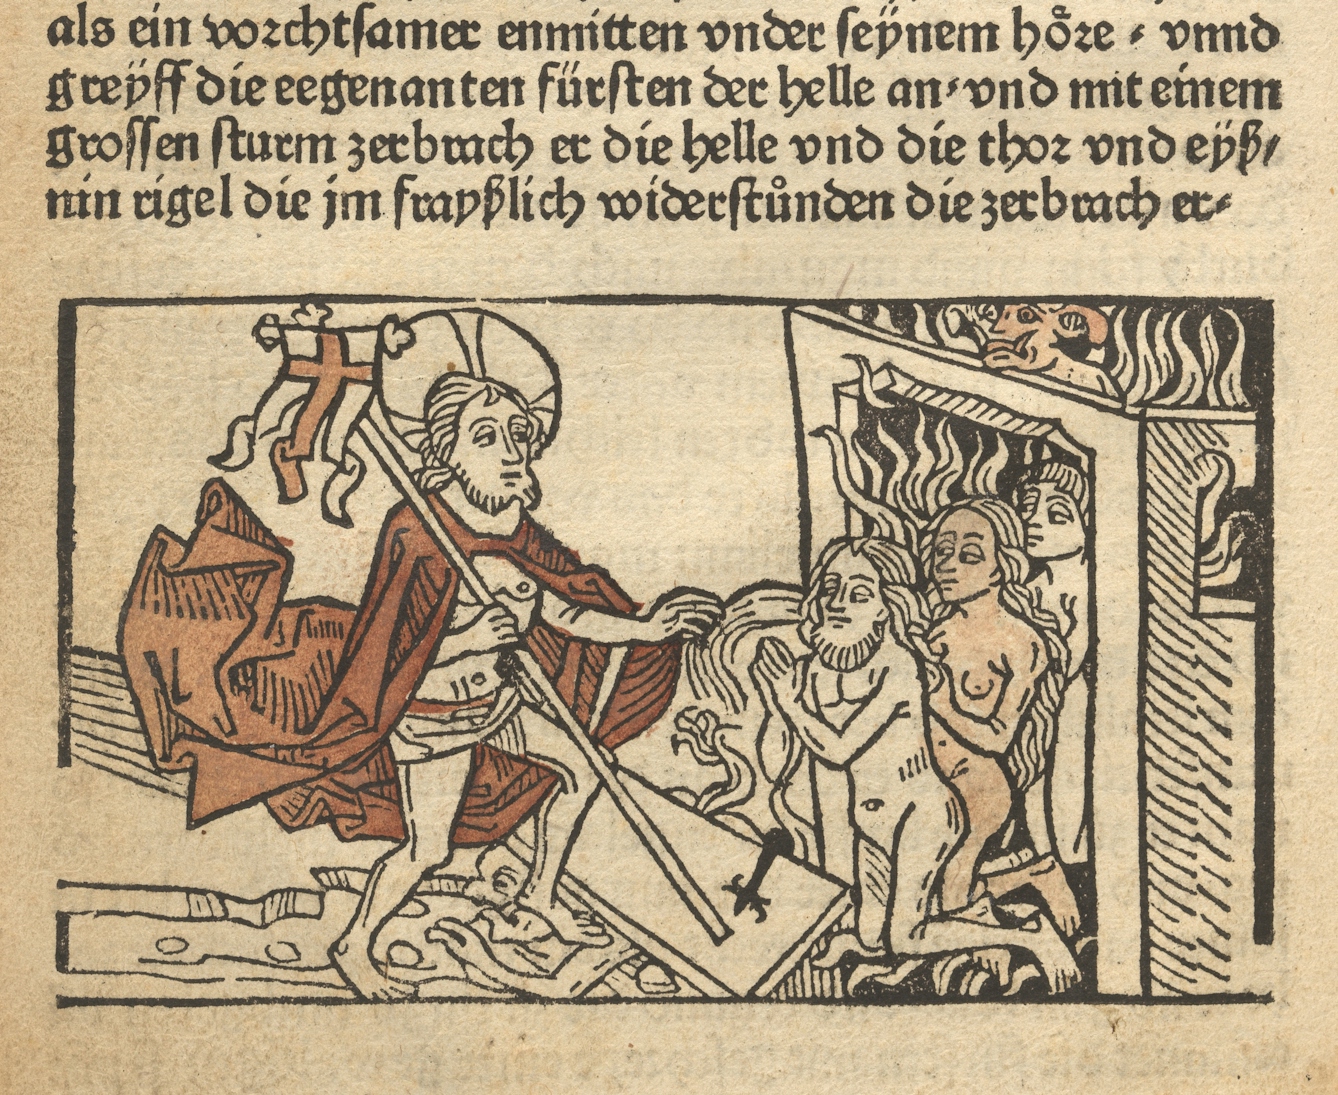 als ein vorchtsamer enmitten vnder seÿnem hoͤre ⸗ vnnd
greÿff die eegenanten fürsten der helle an⸗vnd mit einem
grossen sturm zerbrach er die helle vnd die thor vnd eÿß⸗
nin rigel die jm frayßlich widerstůnden die zerbrach er⸗